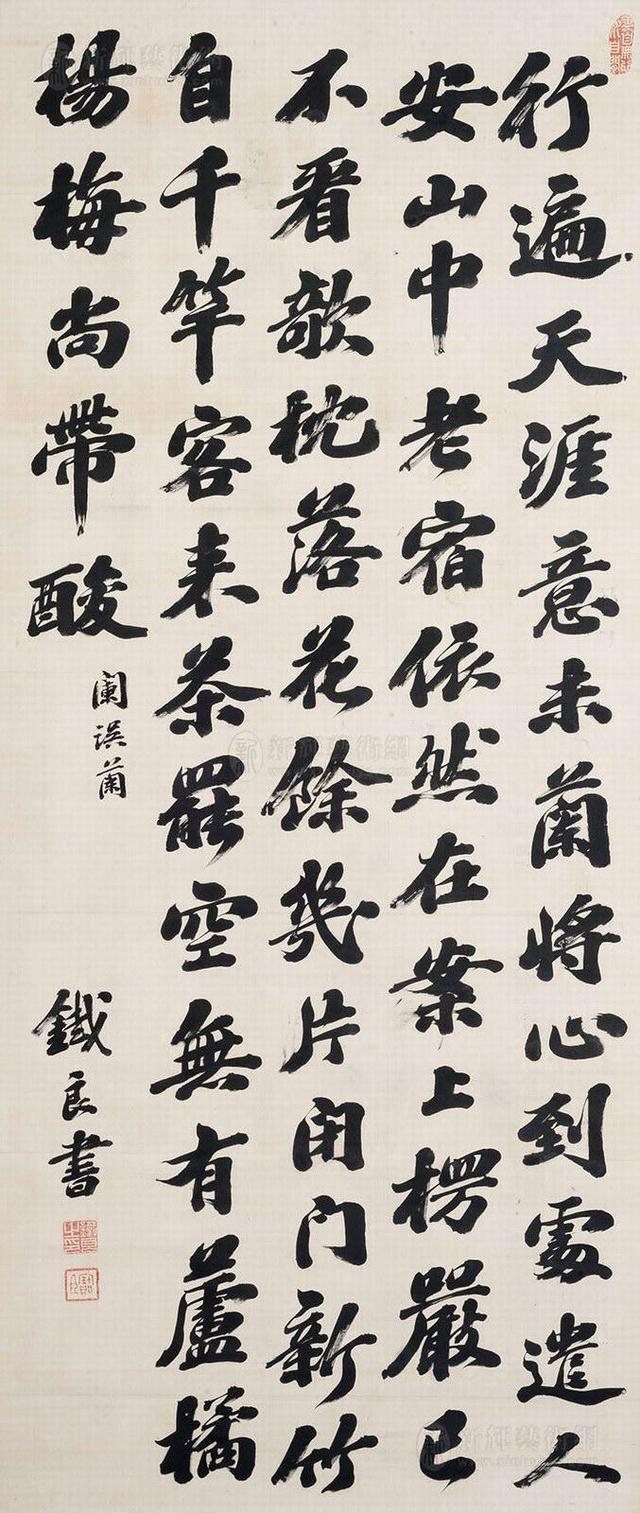 行遍天涯意未蘭將心到處遣人
安山中老宿依然在案上楞嚴已
不看欹枕落花餘幾片闭门新竹
自千竿客来茶罷空無有蘆橘
楊梅尚帶酸
闌誤蘭
鐵良書